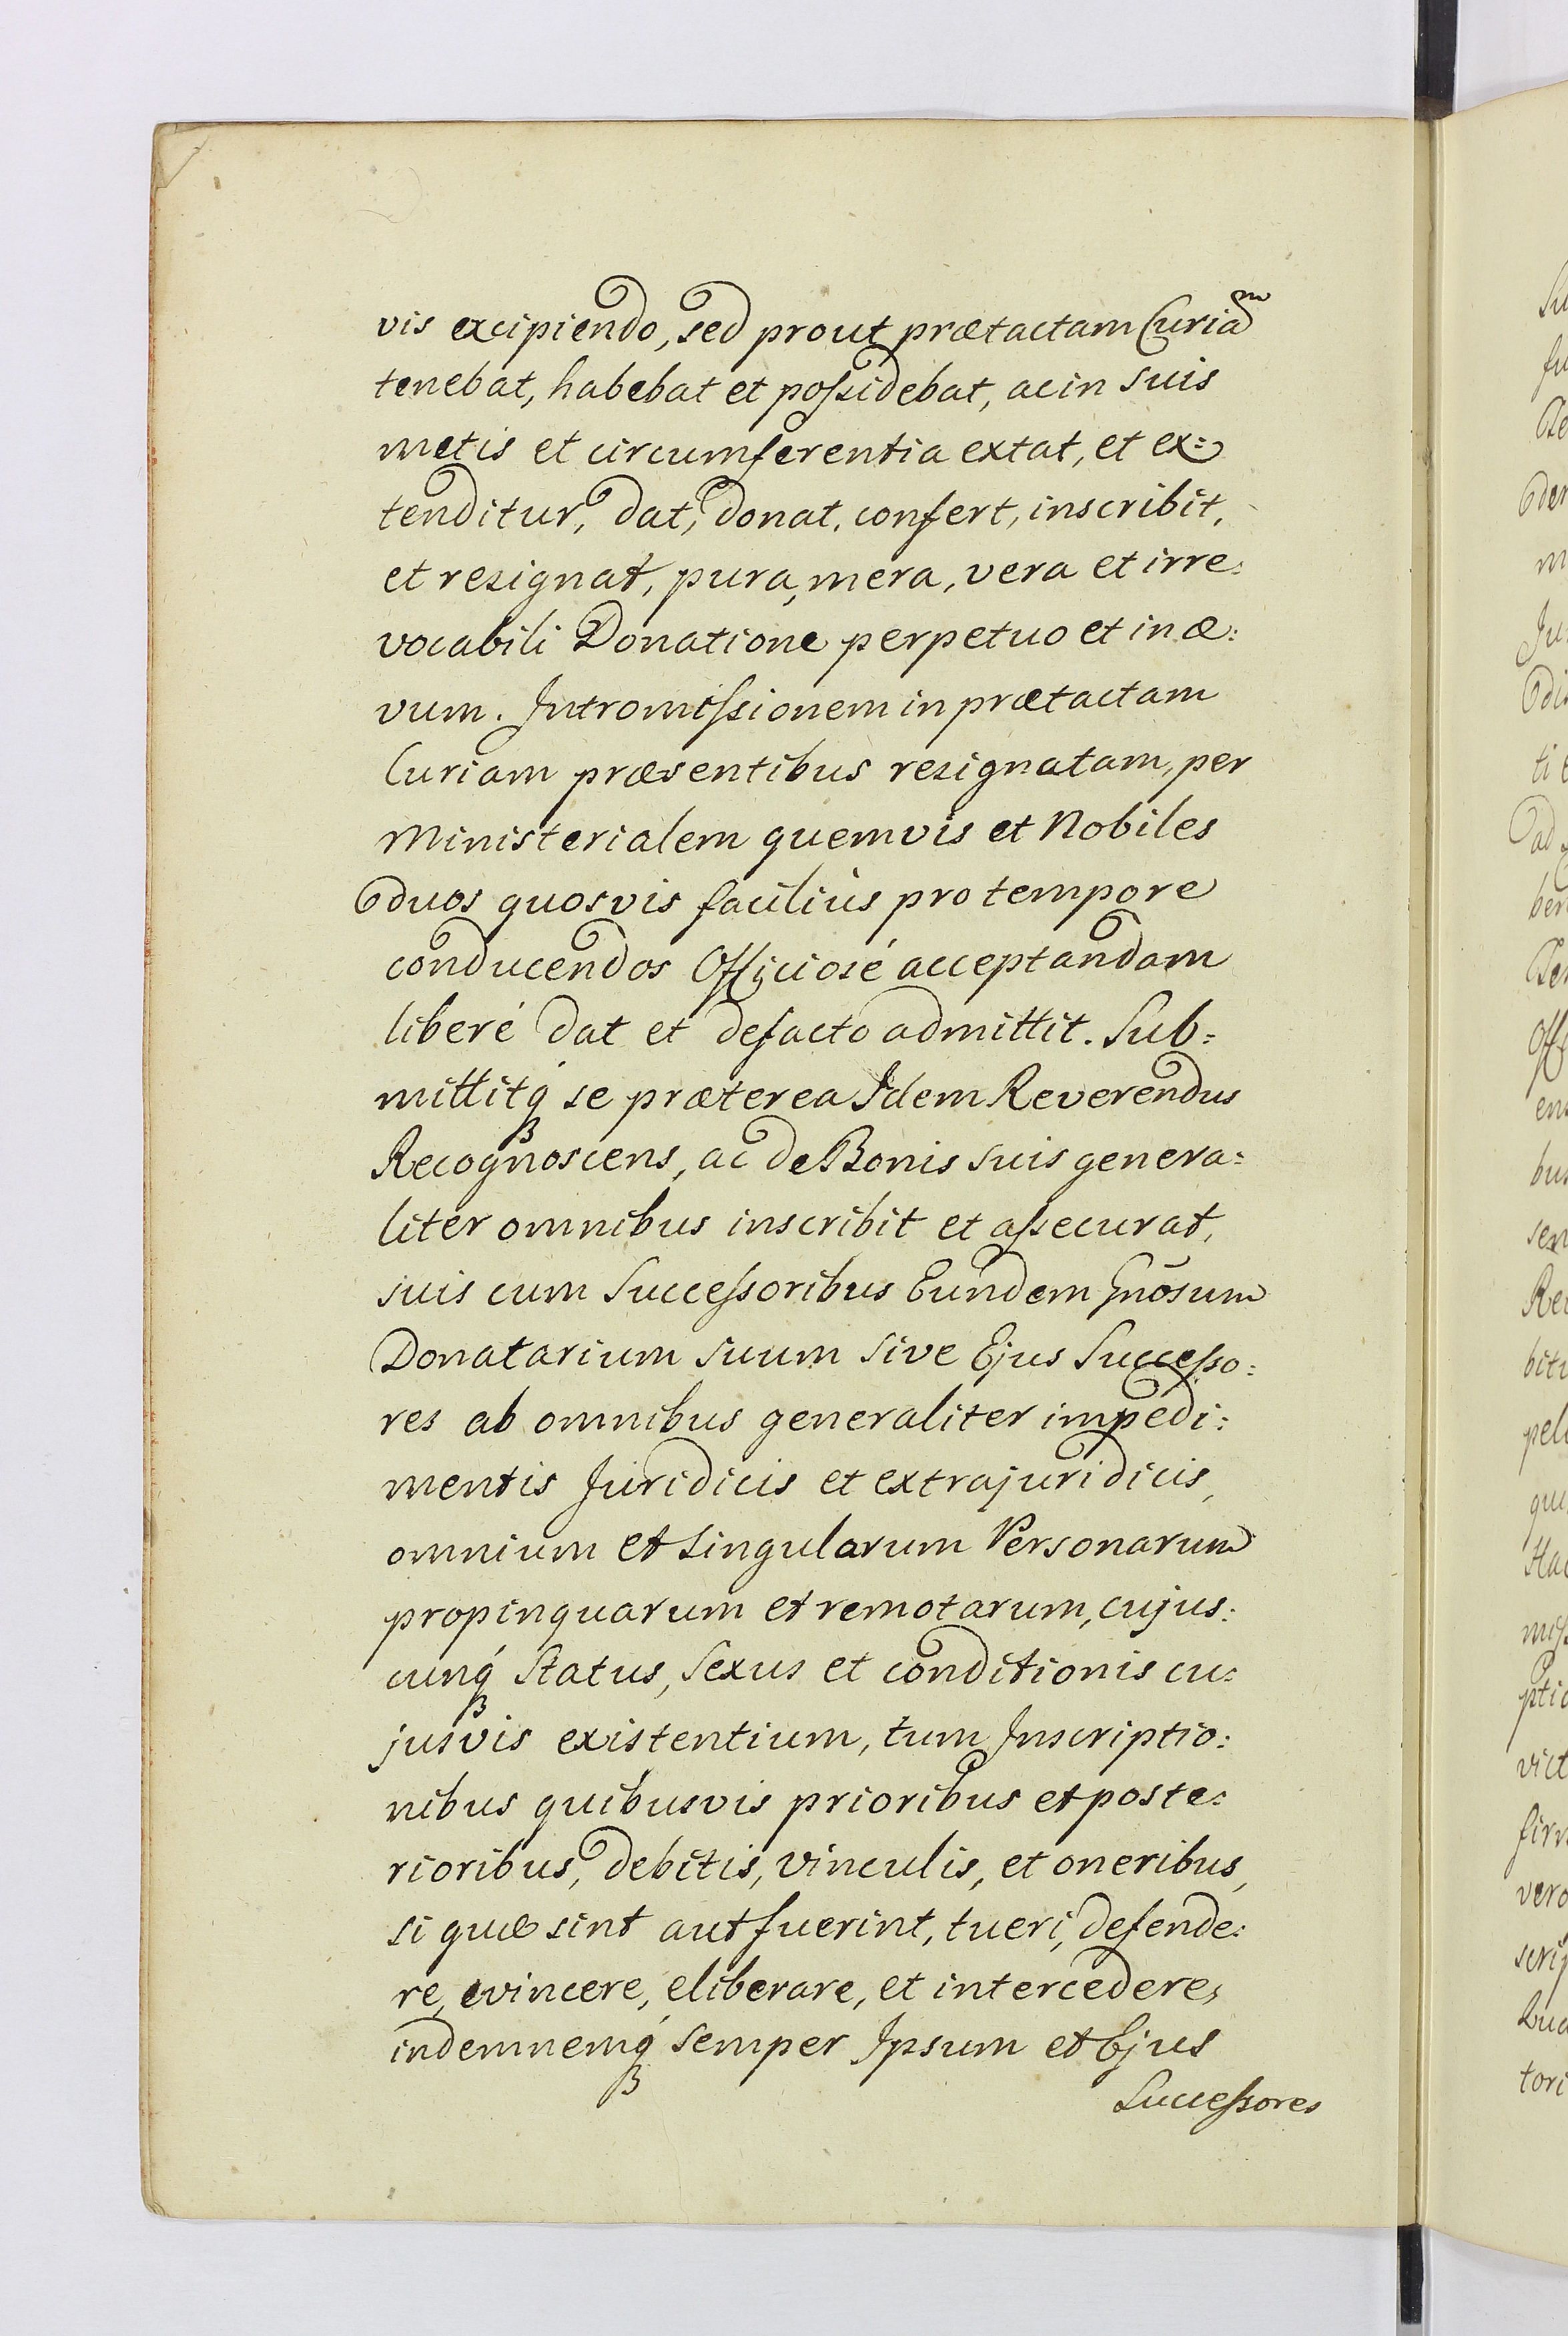 vis excipiendo, sed prout prætactam Curiam
tenebat, habebat et possidebat, ac in suis
metis et circumferentia extat, et ex=
tenditur, dat, donat, confert, inscribit,
et resignat, pura, mera, vera et irre:
vocabili Donatione perpetuo et in æ:
vum. Intromissionem in prætactam
Curiam præsentibus resignatam, per
Ministerialem quemvis et Nobiles
duos quosvis facilius pro tempore
conducendos Officiosé acceptandam
liberé dat et defacto admittit. Sub=
mittitq́ se præterea Idem Reverendus
Recognoscens, ac de Bonis suis genera=
liter omnibus inscribit et assecurat,
suis cum Successoribus Eundem Gnõsum
Donatarium suum sive Ejus Successo:
res ab omnibus generaliter impedi:
mentis Juridicis et extrajuridicis,
omnium et singularum Personarum
propinquarum et remotarum, cujus:
cunq́ Status, Sexus et conditionis cu:
jusvis existentium, tum Inscriptio:
nibus quibusvis prioribus et poste:
rioribus, debitis, vinculis, et oneribus,
si quæ sint aut fuerint, tueri, defende:
re, evincere, eliberare, et intercedere,
indemnemq́ semper Ipsum et Ejus
Successores